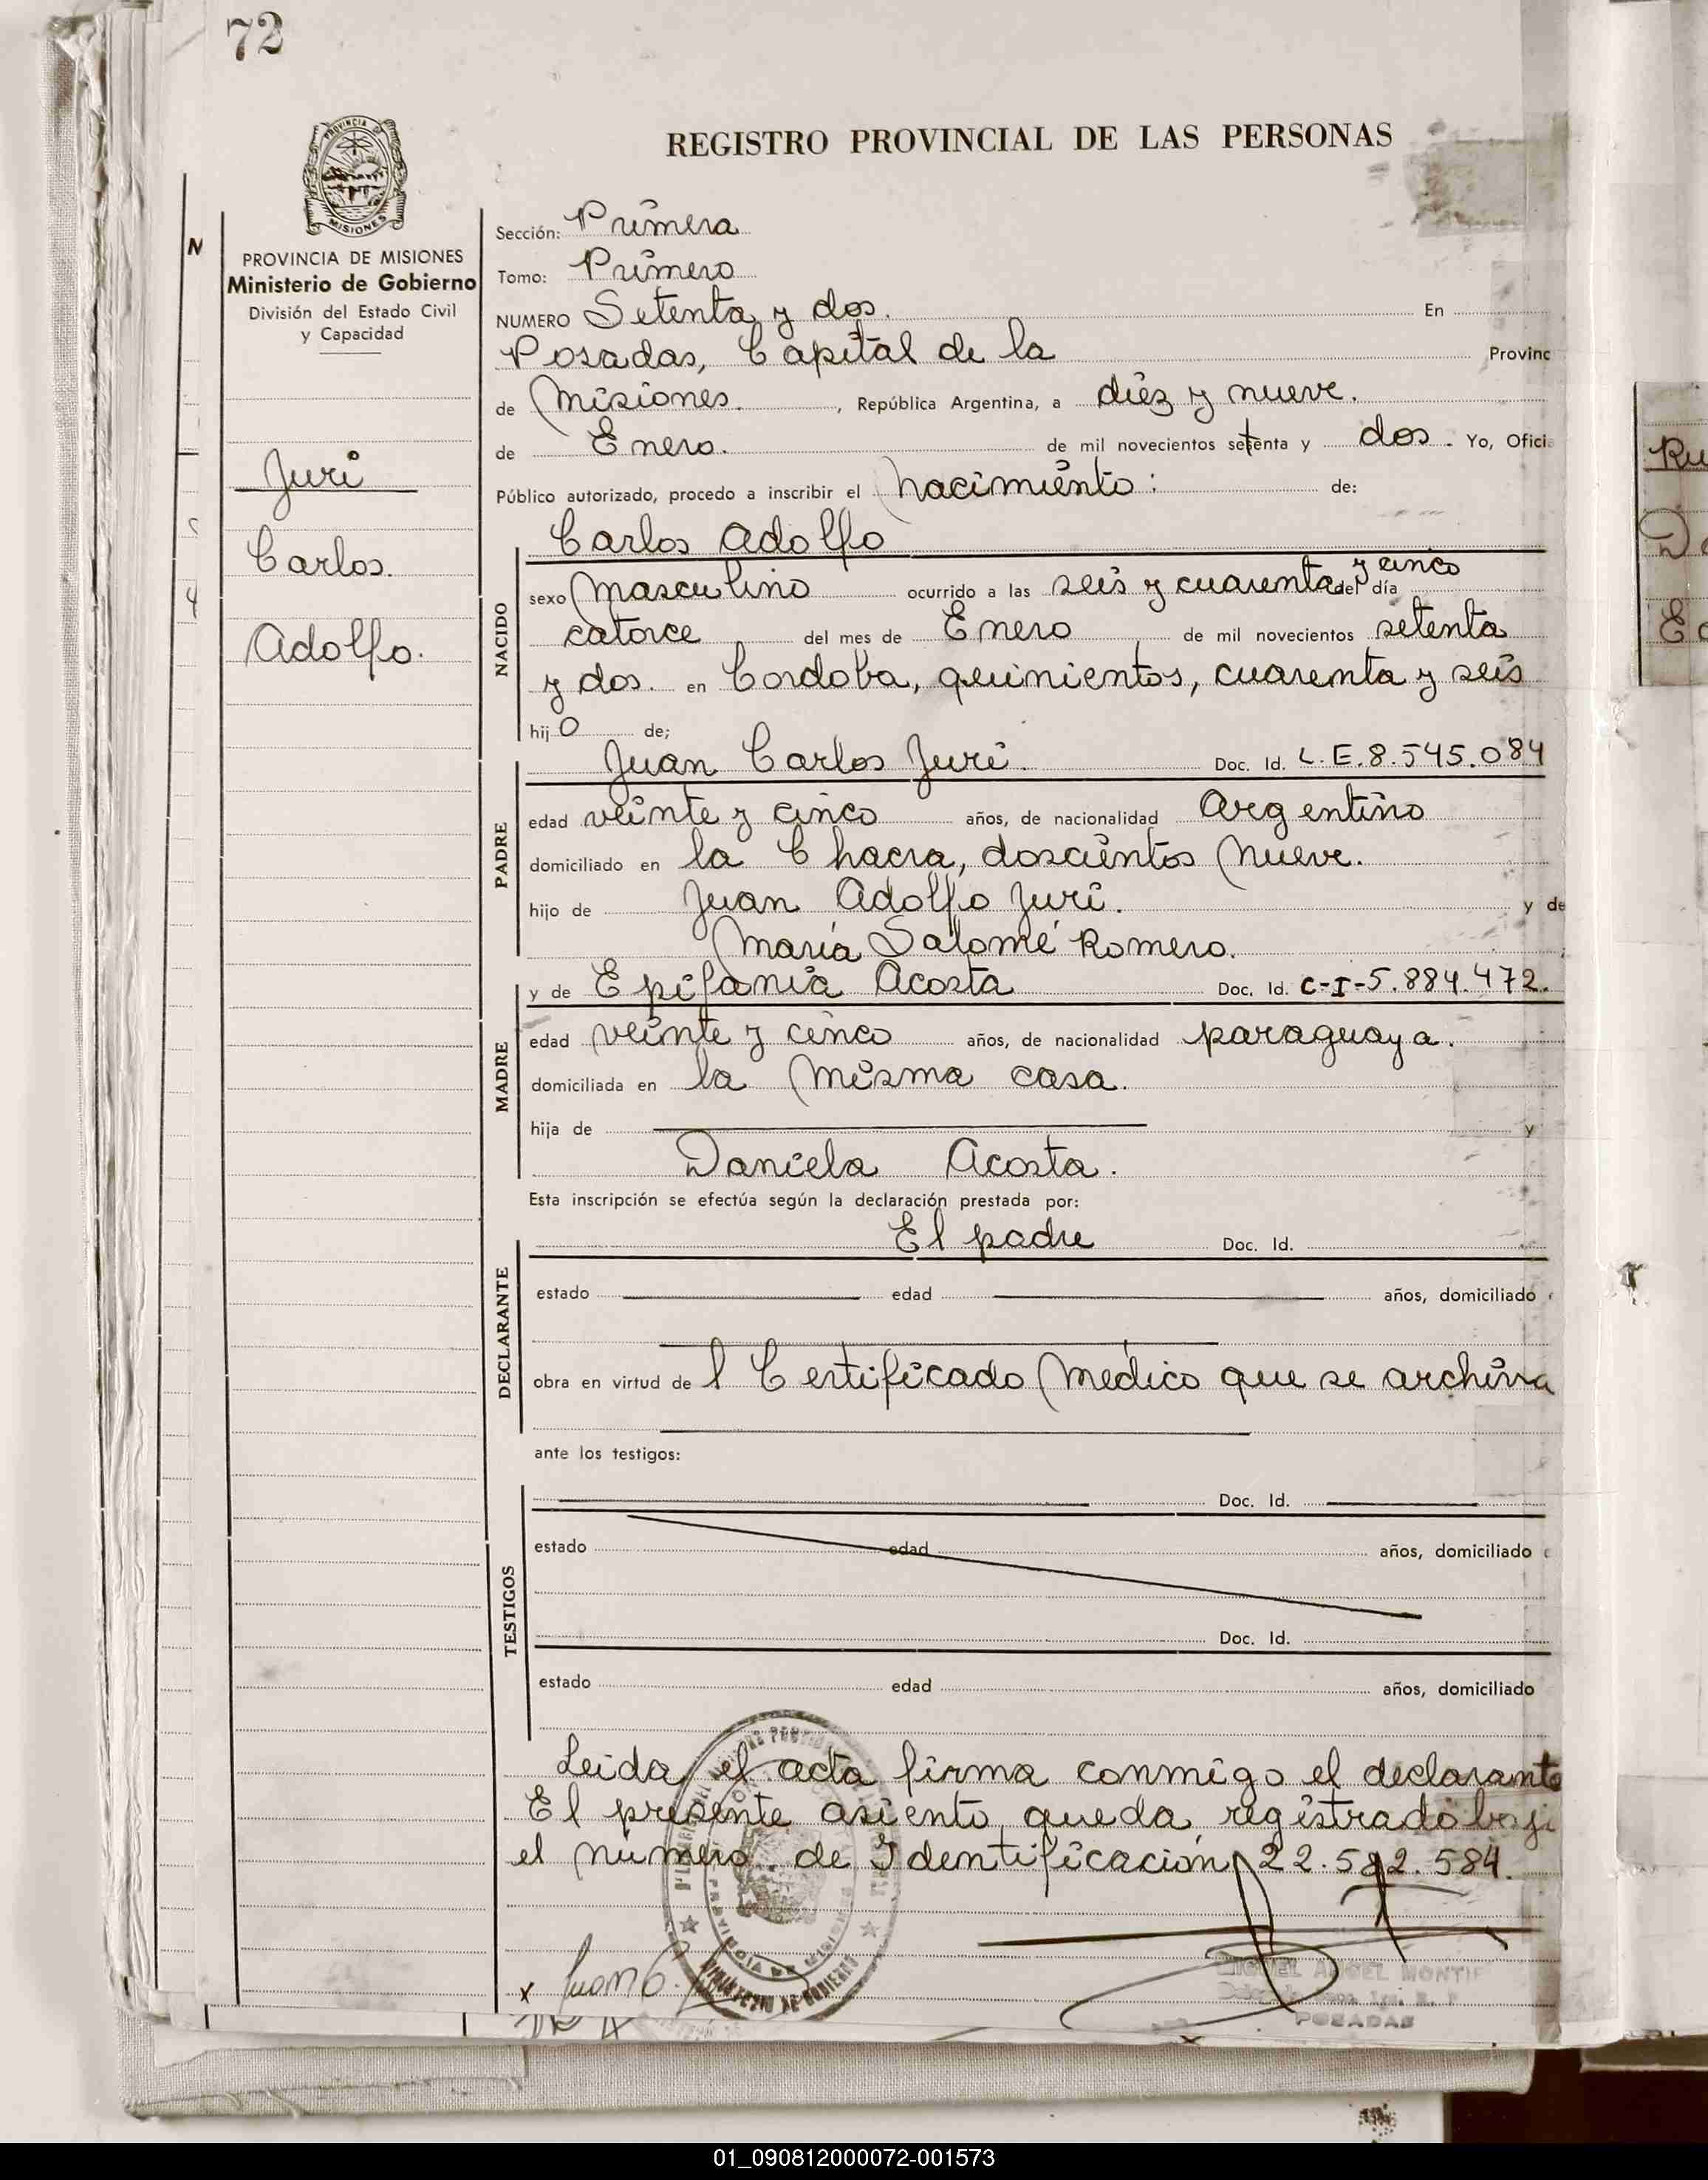 72
REGISTRO PROVINCIAL DE LAS PERSONAS
PROVINCIA DE MISIONES
Ministerio de Gobierno
División del Estado Civil
y Capacidad
Juri
Carlos.
Adolfo.
Sección: Primera
Tomo: Primero
NUMERO Setenta y dos. En
Posadas, Capital de la Provinc
de Misiones. , República Argentina, a diez y nueve.
de Enero. de mil novecientos setenta y dos. Yo, Ofici
Público autorizado, procedo a inscribir el nacimiento: de:
NACIDO
Carlos Adolfo
sexo masculino ocurrido a las seis y cuarenta y cinco del día
catorce del mes de Enero de mil novecientos setenta
y dos. en Cordoba, quinientos, cuarenta y seis
hijo de;
PADRE
Juan Carlos Juri. Doc. Id. L.E.8.545.084
edad veinte y cinco años, de nacionalidad Argentino
domiciliado en la Chacra, doscientos nueve.
hijo de Juan Adolfo Juri. y de
María Salomé Romero.
MADRE
y de Epifania Acosta Doc. Id. C-I-5.884.472.
edad veinte y cinco años, de nacionalidad paraguaya.
domiciliada en la misma casa.
hija de y
Daniela Acosta.
Esta inscripción se efectúa según la declaración prestada por:
DECLARANTE
El padre Doc. Id.
estado edad años, domiciliado
obra en virtud del Certificado Medico que se archiva
ante los testigos:
TESTIGOS
Doc. Id.
estado edad años, domiciliado
Doc. Id.
estado edad años, domiciliado
Leida el acta firma conmigo el declarante
El presente asiento queda registrado bajo
el número de Identificación 22.542.584.
x Juan C.
MIGUEL ANGEL MONTI
POSADAS
PROVINCIA DE MISIONES
MINISTERIO DE GOBIERNO
01_090812000072-001573